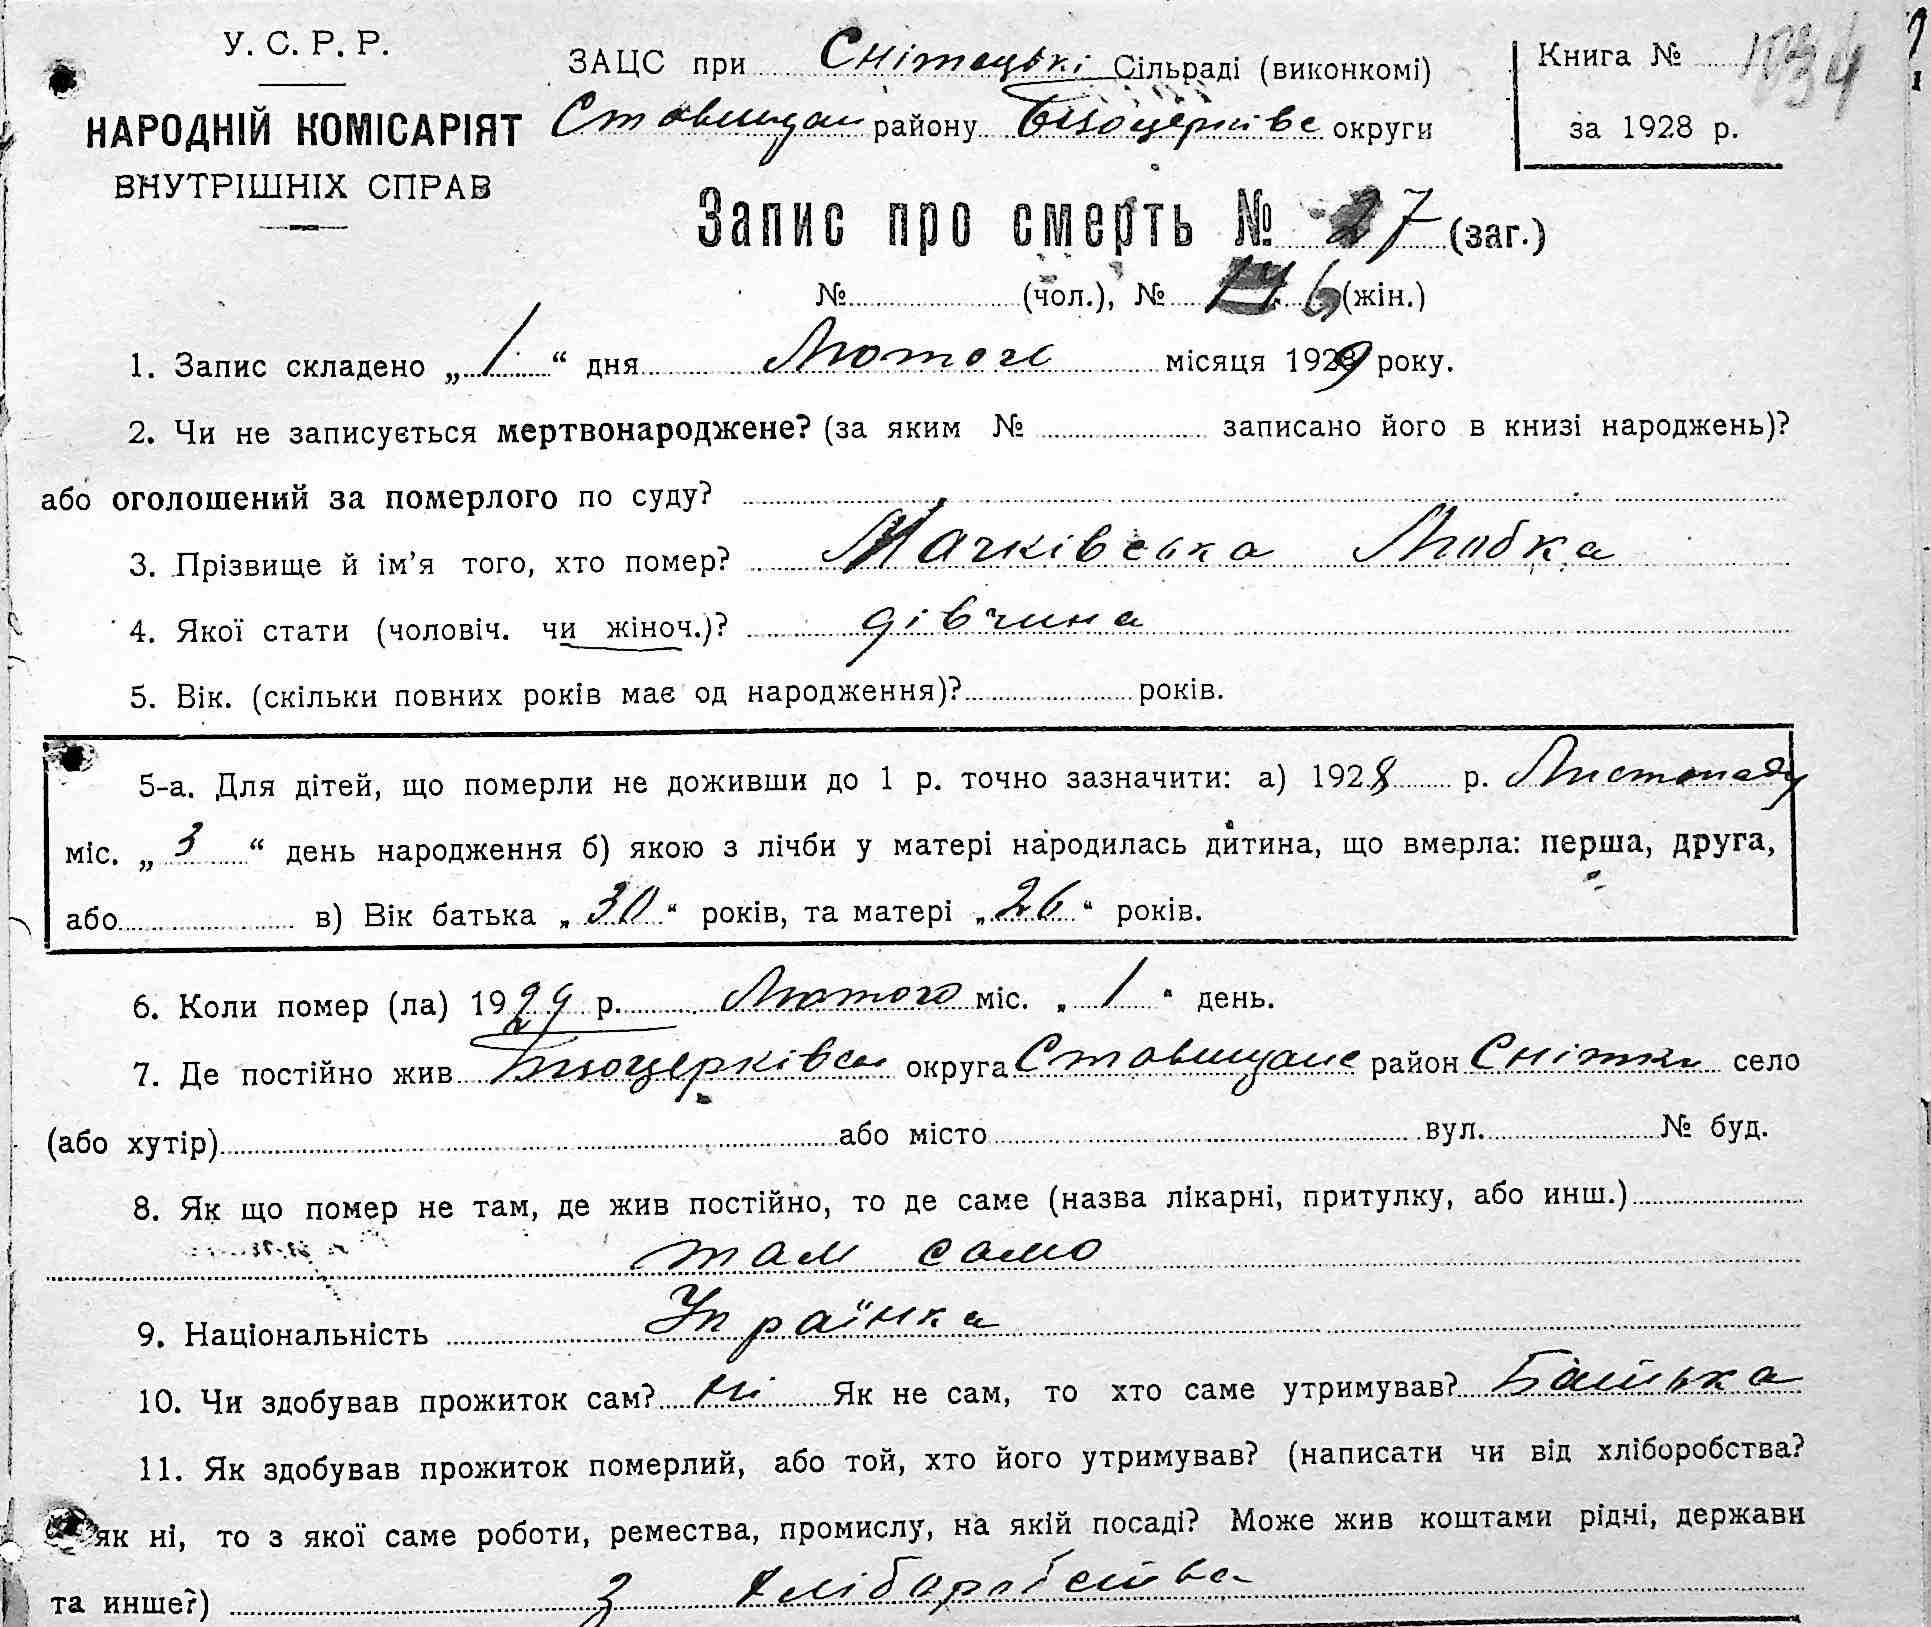 У. С. Р. Р.
НАРОДНІЙ КОМІСАРІЯТ
ВНУТРІШНІХ СПРАВ
ЗАЦС при Снітецькі Сільраді (виконкомі)
Ставищан району Білоцерківс округи
Книга №
за 1928 р.
Запис про смерть № 27 (заг.)
№ (чол.), № 6 (жін.)
1. Запис складено „ 1 “ дня Лютого місяця 1929 року.
2. Чи не записується мертвонароджене? (за яким № записано його в книзі народжень)?
або оголошений за померлого по суду?
3. Прізвище й ім’я того, хто помер? Мачківська Любка
4. Якої стати (чоловіч. чи жіноч.)? дівчина
5. Вік. (скільки повних років має од народження)? років.
5-а. Для дітей, що померли не доживши до 1 р. точно зазначити: а) 1928 р. Листопаду
міс. „ 3 “ день народження б) якою з лічби у матері народилась дитина, що вмерла: перша, друга,
або в) Вік батька „ 30 “ років, та матері „ 26 “ років.
6. Коли помер (ла) 1929 р. Лютого міс. „ 1 “ день.
7. Де постійно жив Білоцерківськ округа Ставищанс район Снітки село
(або хутір) або місто вул. № буд.
8. Як що помер не там, де жив постійно, то де саме (назва лікарні, притулку, або инш.)
там само
9. Національність Українка
10. Чи здобував прожиток сам? Ні Як не сам, то хто саме утримував? Батька
11. Як здобував прожиток померлий, або той, хто його утримував? (написати чи від хліборобства?
як ні, то з якої саме роботи, ремества, промислу, на якій посаді? Може жив коштами рідні, держави
та инше?) З хліборобства